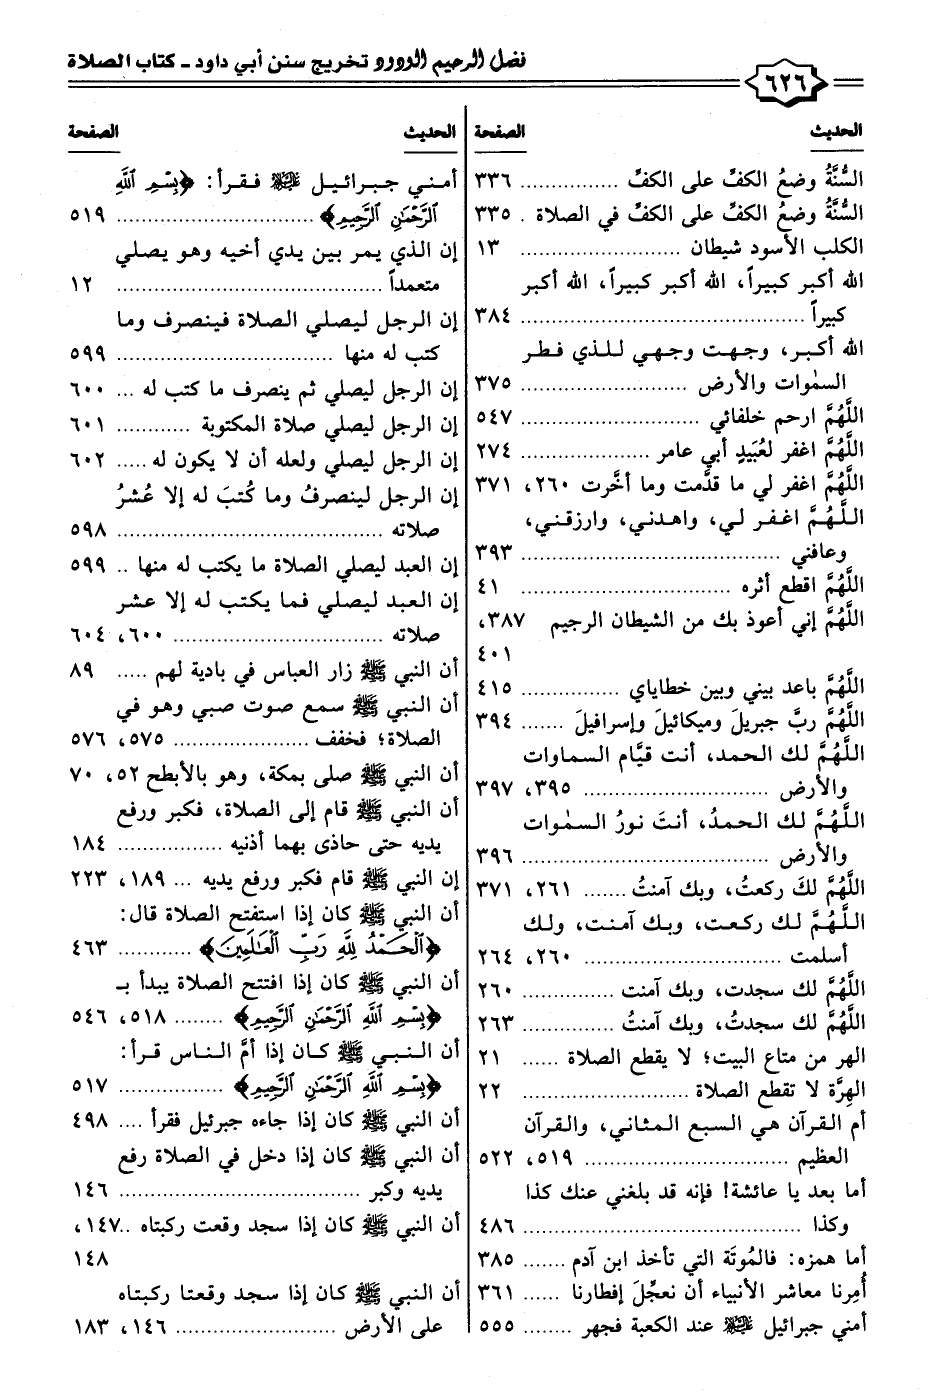 فضل الرحيم الودود تخريج سنن أبي داود - كتاب الصلاة
٦٢٦
الحديث الصفحة
السُّنَّةُ وضعُ الكفِّ على الكفِّ ................ ٣٣٦
السُّنَّةُ وضعُ الكفِّ على الكفِّ في الصلاة . ٣٣٥
الكلب الأسود شيطان .......................... ١٣
الله أكبر كبيراً، الله أكبر كبيراً، الله أكبر
كبيراً ............................................. ٣٨٤
الله أكبر، وجهت وجهي للذي فطر
السمٰوات والأرض ........................... ٣٧٥
اللَّهُمَّ ارحم خلفائي ............................. ٥٤٧
اللَّهُمَّ اغفر لعُبَيدٍ أبي عامر ..................... ٢٧٤
اللَّهُمَّ اغفر لي ما قدَّمت وما أخَّرت ٢٦٠، ٣٧١
اللَّهُمَّ اغفر لي، واهدني، وارزقني،
وعافني .......................................... ٣٩٣
اللَّهُمَّ اقطع أثره .................................. ٤١
اللَّهُمَّ إني أعوذ بك من الشيطان الرجيم ٣٨٧،
٤٠١
اللَّهُمَّ باعد بيني وبين خطاياي ................ ٤١٥
اللَّهُمَّ ربَّ جبريلَ وميكائيلَ وإسرافيلَ ....... ٣٩٤
اللَّهُمَّ لك الحمد، أنت قيَّام السماوات
والأرض .............................. ٣٩٥، ٣٩٧
اللَّهُمَّ لك الحمدُ، أنتَ نورُ السمٰوات
والأرض ........................................ ٣٩٦
اللَّهُمَّ لكَ ركعتُ، وبك آمنتُ ....... ٢٦١، ٣٧١
اللَّهُمَّ لك ركعت، وبك آمنت، ولك
أسلمت .............................. ٢٦٠، ٢٦٤
اللَّهُمَّ لك سجدت، وبك آمنت ............... ٢٦٠
اللَّهُمَّ لك سجدتُ، وبك آمنتُ ............... ٢٦٣
الهر من متاع البيت؛ لا يقطع الصلاة ...... ٢١
الهِرَّة لا تقطع الصلاة ........................... ٢٢
أم القرآن هي السبع المثاني، والقرآن
العظيم ................................ ٥١٩، ٥٢٢
أما بعد يا عائشة! فإنه قد بلغني عنك كذا
وكذا ............................................. ٤٨٦
أما همزه: فالمُوتَة التي تأخذ ابن آدم ....... ٣٨٥
أُمِرنا معاشر الأنبياء أن نعجِّلَ إفطارنا ...... ٣٦١
أمني جبرائيل عليه السلام عند الكعبة فجهر ........ ٥٥٥
الحديث الصفحة
أمني جبرائيل عليه السلام فقرأ: ﴿بِسْمِ ٱللَّهِ
ٱلرَّحْمَٰنِ ٱلرَّحِيمِ﴾ ................................ ٥١٩
إن الذي يمر بين يدي أخيه وهو يصلي
متعمداً .......................................... ١٢
إن الرجل ليصلي الصلاة فينصرف وما
كتب له منها ................................... ٥٩٩
إن الرجل ليصلي ثم ينصرف ما كتب له ... ٦٠٠
إن الرجل ليصلي صلاة المكتوبة ............ ٦٠١
إن الرجل ليصلي ولعله أن لا يكون له ..... ٦٠٢
إن الرجل لينصرفُ وما كُتبَ له إلا عُشرُ
صلاته .......................................... ٥٩٨
إن العبد ليصلي الصلاة ما يكتب له منها .. ٥٩٩
إن العبد ليصلي فما يكتب له إلا عشر
صلاته ................................. ٦٠٠، ٦٠٤
أن النبي ﷺ زار العباس في بادية لهم ..... ٨٩
أن النبي ﷺ سمع صوت صبي وهو في
الصلاة؛ فخفف ...................... ٥٧٥، ٥٧٦
أن النبي ﷺ صلى بمكة، وهو بالأبطح ٥٢، ٧٠
أن النبي ﷺ قام إلى الصلاة، فكبر ورفع
يديه حتى حاذى بهما أذنيه ................. ١٨٤
إن النبي ﷺ قام فكبر ورفع يديه ... ١٨٩، ٢٢٣
أن النبي ﷺ كان إذا استفتح الصلاة قال:
﴿ٱلْحَمْدُ لِلَّهِ رَبِّ ٱلْعَٰلَمِينَ﴾ ............ ٤٦٣
أن النبي ﷺ كان إذا افتتح الصلاة يبدأ بـ
﴿بِسْمِ ٱللَّهِ ٱلرَّحْمَٰنِ ٱلرَّحِيمِ﴾ ........ ٥١٨، ٥٤٦
أن النبي ﷺ كان إذا أمَّ الناس قرأ:
﴿بِسْمِ ٱللَّهِ ٱلرَّحْمَٰنِ ٱلرَّحِيمِ﴾ ................. ٥١٧
أن النبي ﷺ كان إذا جاءه جبرئيل فقرأ .... ٤٩٨
أن النبي ﷺ كان إذا دخل في الصلاة رفع
يديه وكبر ...................................... ١٤٦
أن النبي ﷺ كان إذا سجد وقعت ركبتاه ..١٤٧،
١٤٨
أن النبي ﷺ كان إذا سجد وقعتا ركبتاه
على الأرض .......................... ١٤٦، ١٨٣